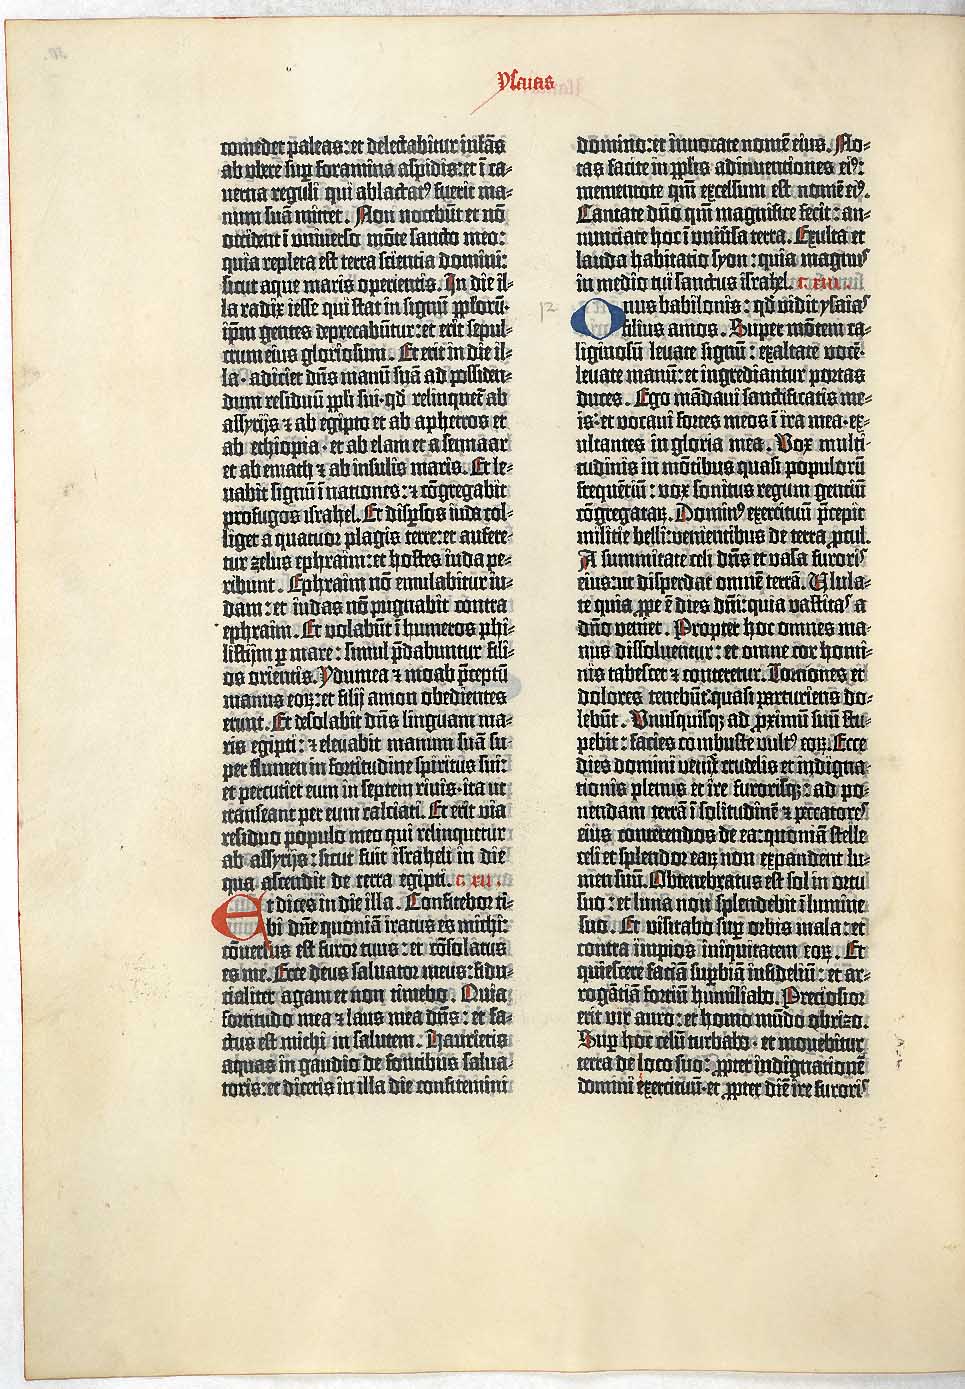 Ysaias
comedet paleas: et delectabitur infās
ab vbere sup foramina aspidis: et ī ca-
uerna reguli qui ablactatꝰ fuerit ma-
num suā mittet. Non nocebūt et nō
occident ī universo mōte sancto meo:
quia repleta est terra scientia domini:
sicut aque maris operientis. In die il-
la radix iesse qui stat in signū pploꝝ.
ipm̄ gentes deprecabūtur: et erit sepul-
crum eius gloriosum. Et erit in die il-
la· adiciet dn̄s manū suā ad possiden-
dum residuū ppli sui· qd relinquet̄ ab
assyrijs ⁊ ab egipto et ab aphetros et
ab ethiopia· et ab elam et a sennaar
et ab emath ⁊ ab insulis maris. Et le-
uabit signū ī nationes: ⁊ cōgregabit
profugos israhel. Et disp̄sos iuda col-
liget a quatuor plagis terre: et aufere-
tur zelus ephraim: et hostes iuda pe-
ribunt. Ephraim nō emulabitur iu-
dam: et iudas nō pugnabit contra
ephraim. Et volabūt ī humeros phi-
listijm ꝑ mare: simul p̄dabuntur fili-
os orientis. Ydumea ⁊ moab p̄ceptū
manus eoꝝ: et filij amon obedientes
erunt. Et desolabit dn̄s linguam ma-
ris egipti: ⁊ eleuabit manum suā su-
per flumen in fortitudine spiritus sui:
et percutiet eum in septem riuis· ita ut
transeant per eum calciati. Et erit via
residuo populo meo qui relinquetur
ab assyrijs: sicut fuit israheli in die
qua ascendit de terra egipti. c. xii.
Et dices in die illa. Confitebor ti-
bi dn̄e quoniā iratus es michi:
cōuersus est furor tuus: et cōsolatus
es me. Ecce deus saluator meus: fidu-
cialiter agam et non timebo. Quia
fortitudo mea ⁊ laus mea dn̄s: et fa-
ctus est michi in salutem. Haurietis
aquas in gaudio de fontibus salua-
toris: et dicetis in illa die confitemini
domino: et inuocate nomē eius. No-
tas facite in pplis adinuentiones eiꝰ:
mementote qm̄ excelsum est nomē eiꝰ.
Cantate dn̄o qm̄ magnifice fecit: an-
nunciate hoc ī uniūsa terra. Exulta et
lauda habitatio syon: quia magnus
in medio tui sanctus israhel. c. xiii.
12 Onus babilonis: qd vidit ysaias
filius amos. Super mōtem ca-
liginosū leuate signū: exaltate vocē·
leuate manū: et ingrediantur portas
duces. Ego mādaui sanctificatis me-
is· et vocaui fortes meos ī ira mea· ex-
ultantes in gloria mea. Vox multi-
tudinis in mōtibus quasi populorū
frequētiū: vox sonitus regum gentiū
cōgregataꝝ. Dominꝰ exercituū p̄cepit
militie belli: venientibus de terra ꝓcul.
A summitate celi dn̄s et vasa furoris
eius: ut disperdat omnē terrā. Ulula-
te quia ꝓpe ē dies dn̄i: quia vastitas a
dn̄o veniet. Propter hoc omnes ma-
nus dissoluentur: et omne cor homi-
nis tabescet ⁊ conteretur. Torsiones et
dolores tenebūt: quasi parturiens do-
lebūt. Vnusquisqꝫ ad ꝓximū suū stu-
pebit: facies combuste vultꝰ eoꝝ. Ecce
dies domini veniet crudelis et indigna-
tionis plenus et ire furorisqꝫ: ad po-
nendam terrā ī solitudinē ⁊ peccatores
eius conterendos de ea: quoniā stelle
celi et splendor eaꝝ non expandent lu-
men suū. Obtenebratus est sol in ortu
suo: et luna non splendebit ī lumine
suo. Et visitabo sup orbis mala: et
contra impios iniquitatem eoꝝ. Et
quiescere faciā supbiā infideliū: et ar-
rogātiā fortiū humiliabo. Preciosior
erit vir auro: et homo mūdo obrizo.
Sup hoc celū turbabo· et mouebitur
terra de loco suo: ꝓpter indignationē
domini exercituū· et ꝓpter diē ire furoris